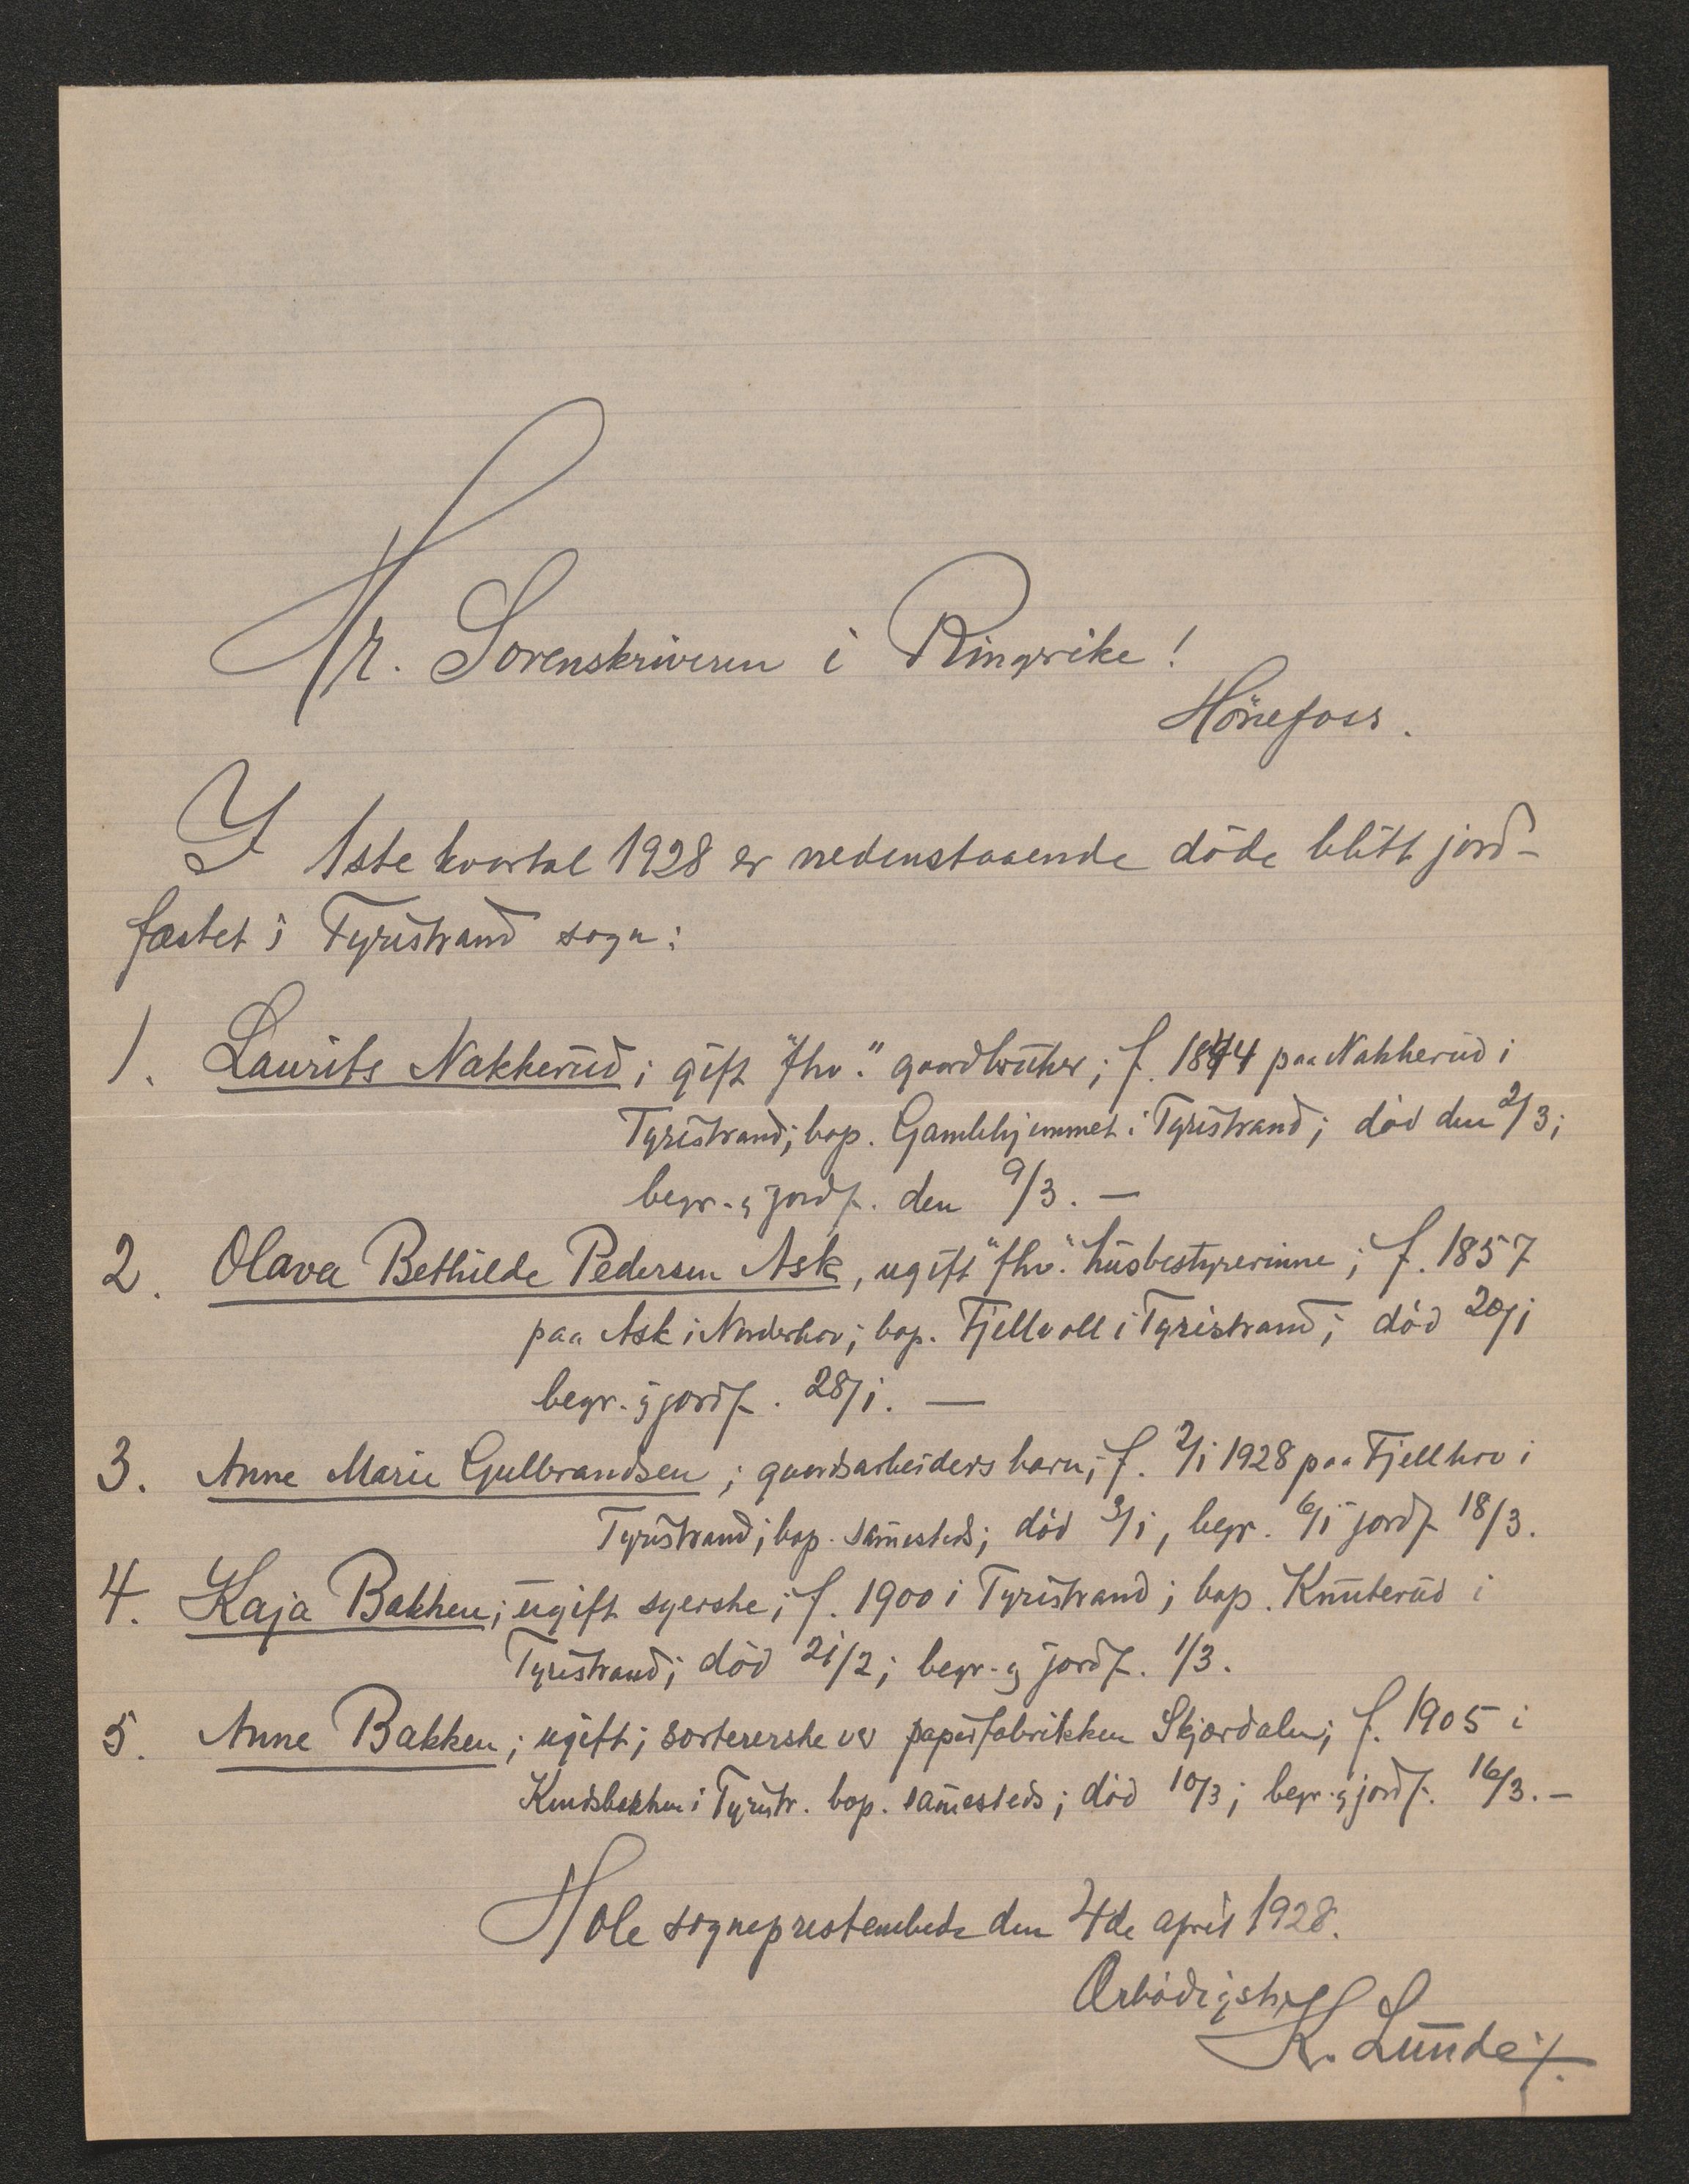 Hr. Sorenskriveren i Ringerike!
Hönefoss.
I 1ste kvartal 1928 er nedenstaaende döde blitt jord-
fæstet i Tyristrand sogn:
1. Laurits Nakkerud; gift "fhv." gaardbruker; f. 1844 paa Nakkerud i
Tyristrand; bop. Gamlehjemmet i Tyristrand; död den 2/3;
begr. og jordf. den 9/3. —
2. Olava Bethilde Pedersen Ask, ugift "fhv." husbestyrerinne; f. 1857
paa Ask i Norderhov; bop. Fjellvoll i Tyristrand; död 20/1
begr. og jordf. 28/1. —
3. Anne Marie Gulbrandsen; gaardsarbeiders barn; f. 2/1 1928 paa Fjellhvo i
Tyristrand; bop. sammesteds; död 3/1, begr. 6/1 jordf. 18/3.
4. Kaja Bakken; ugift syerske; f. 1900 i Tyristrand; bop. Knuterud i
Tyristrand; död 21/2; begr. og jordf. 1/3.
5. Anne Bakken; ugift; sortererske ve papirfabrikken Skjærdalen; f. 1905 i
Knudsbakken i Tyristr. bop. sammesteds; död 10/3; begr. og jordf. 16/3. —
Hole sogneprestembede den 4de april 1928.
Ærbödigst
K. Lunde